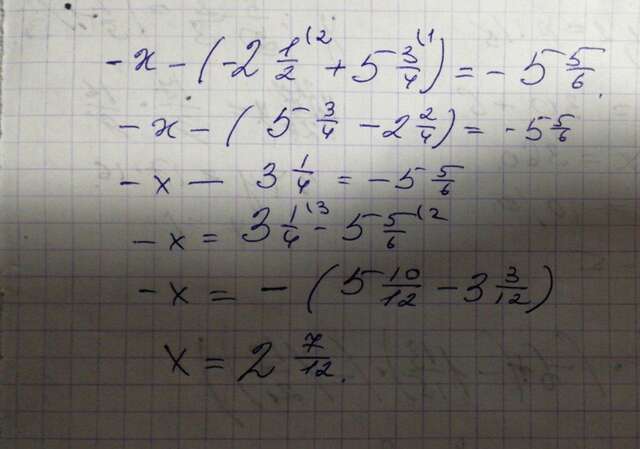 -x - (-2 1/2 (2 + 5 3/4 (1) = - 5 5/6.
-x - (5 3/4 - 2 2/4) = -5 5/6
-x - 3 1/4 = -5 5/6
-x = 3 1/4 (3 - 5 5/6 (2
-x = - (5 10/12 - 3 3/12)
x = 2 7/12.